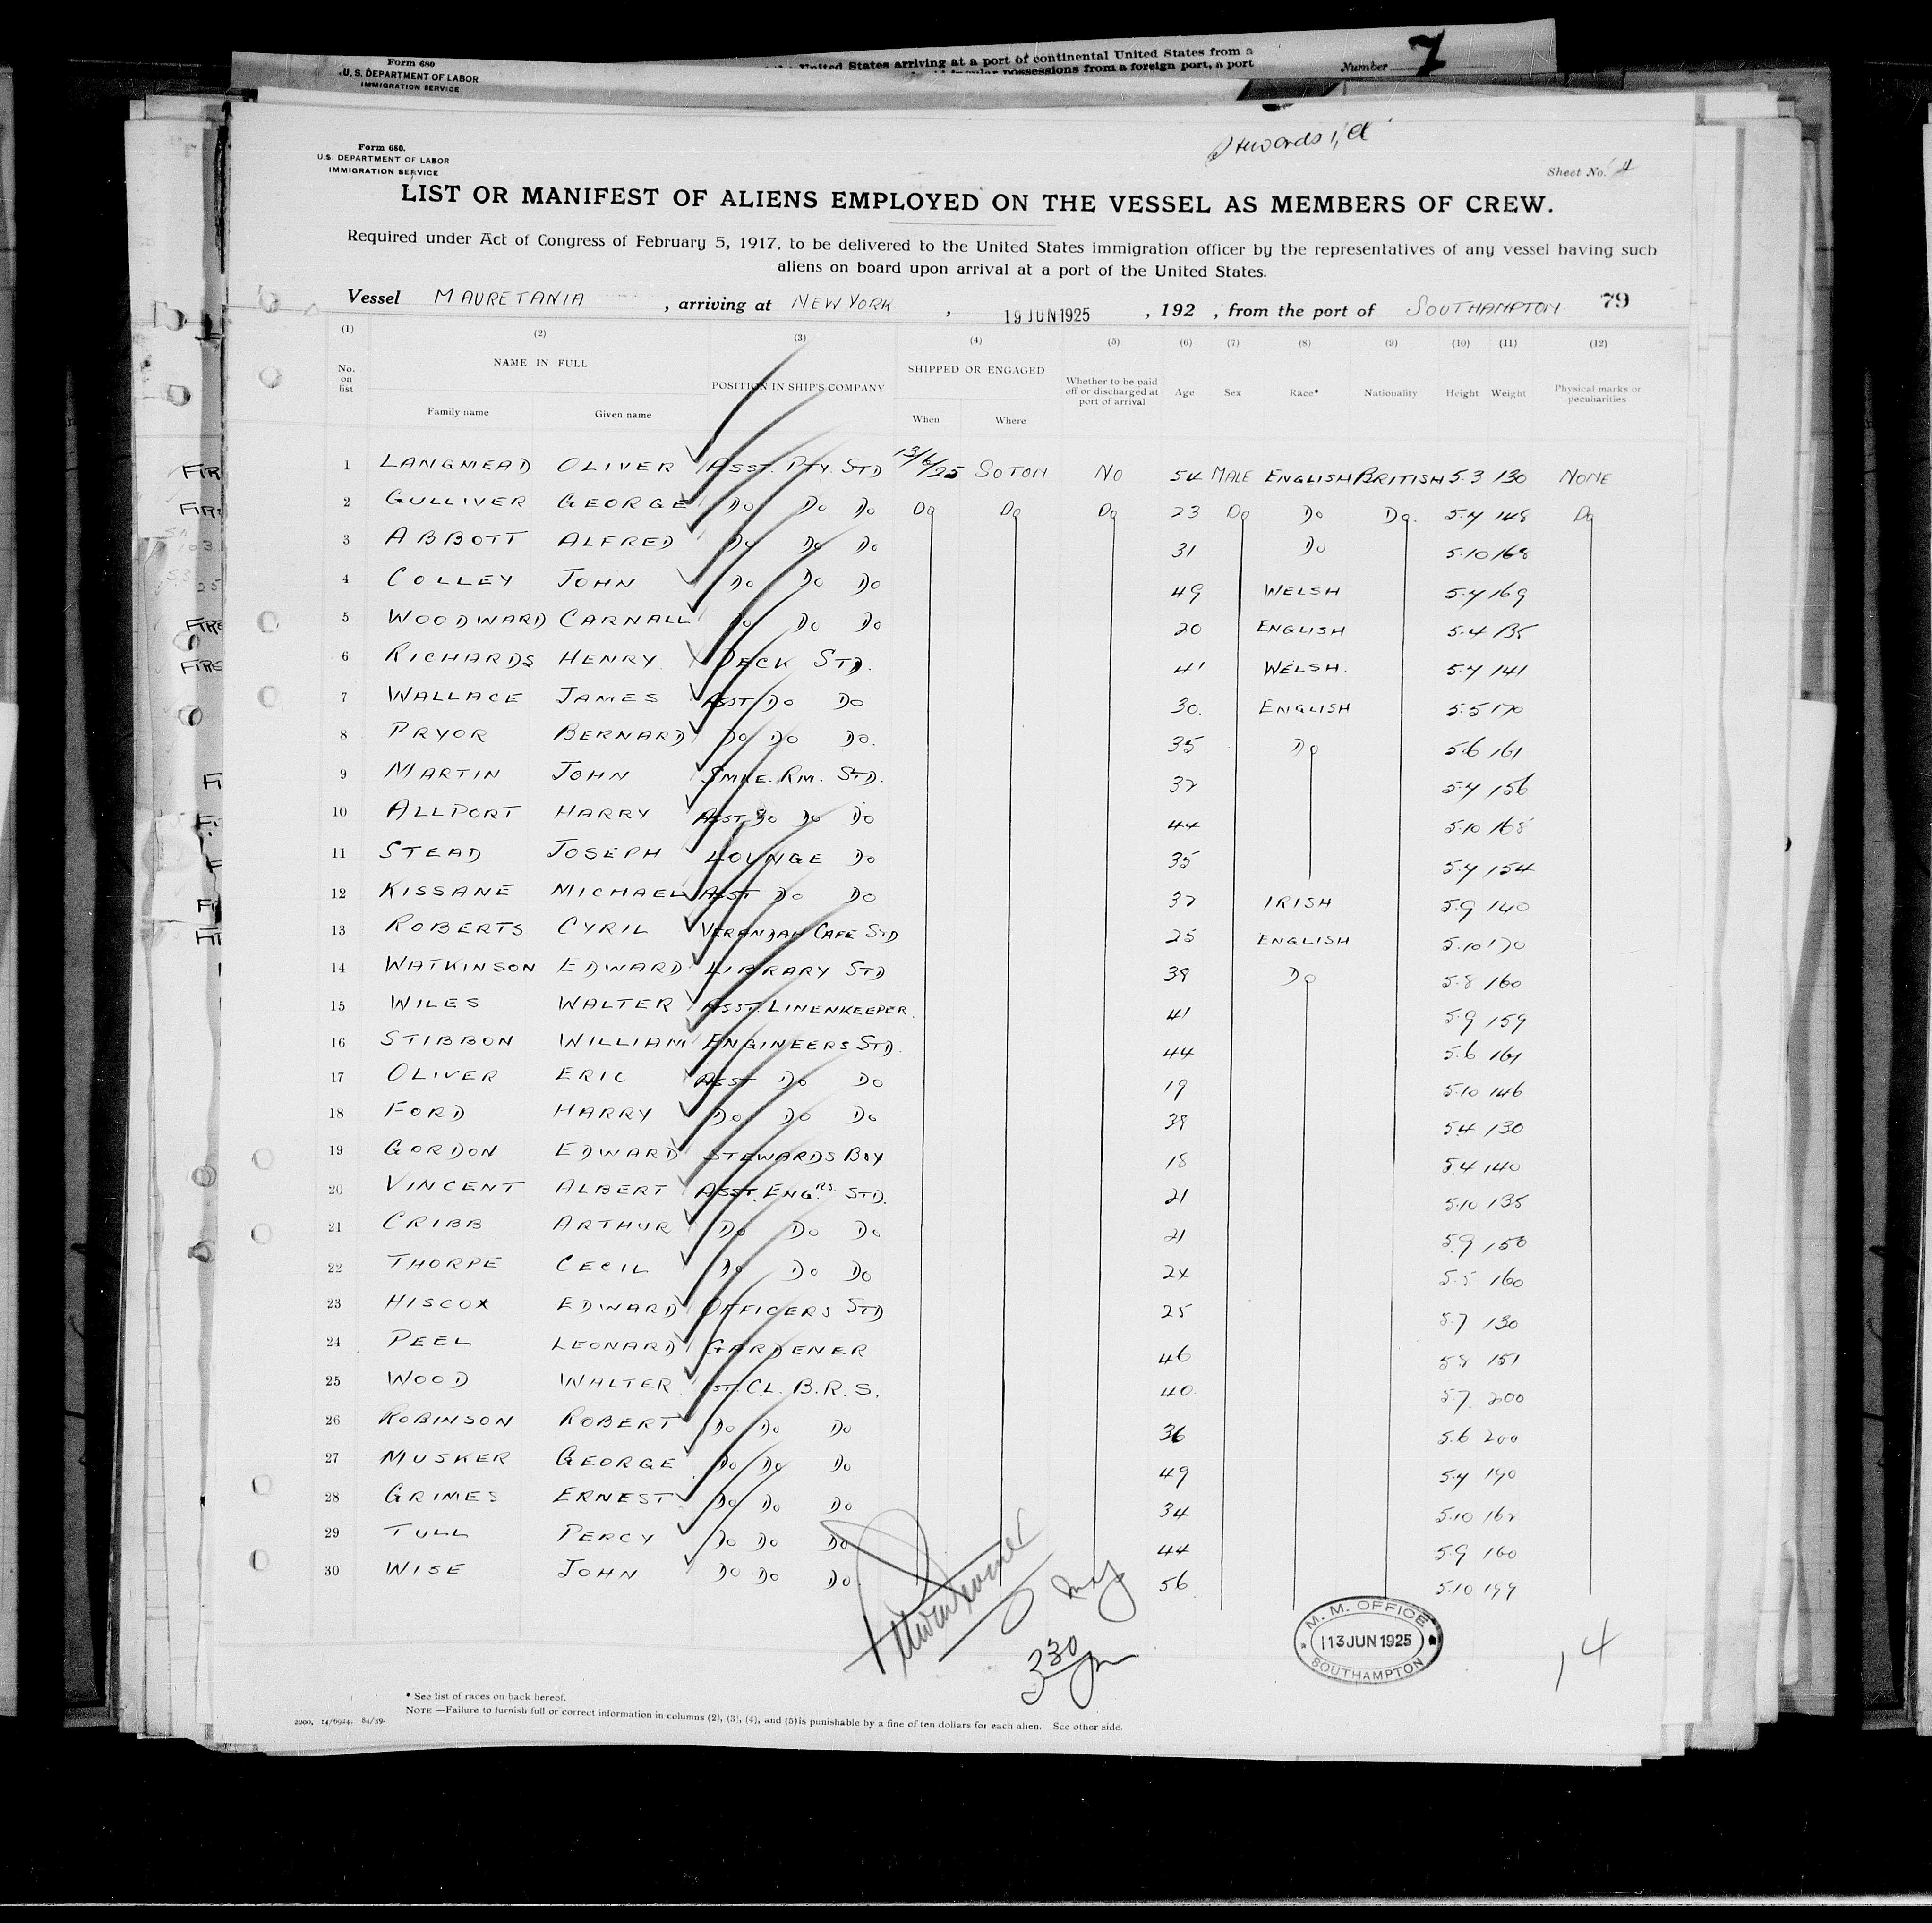 Form 680
U. S. DEPARTMENT OF LABOR
IMMIGRATION SERVICE
United States arriving at a port of continental United States from a
possessions from a foreign port, a port
Number 7
Stewards
Form 680.
U.S. DEPARTMENT OF LABOR
IMMIGRATION SERVICE
Sheet No. 4
LIST OR MANIFEST OF ALIENS EMPLOYED ON THE VESSEL AS MEMBERS OF CREW.
Required under Act of Congress of February 5, 1917, to be delivered to the United States immigration officer by the representatives of any vessel having such
aliens on board upon arrival at a port of the United States.
Vessel MAURETANIA, arriving at NEW YORK, 19 JUN 1925, 192 , from the port of SOUTHAMPTON 79
(1) (2) (3) (4) (5) (6) (7) (8) (9) (10) (11) (12)
No. on list NAME IN FULL Family name Given name POSITION IN SHIP'S COMPANY SHIPPED OR ENGAGED When Where Whether to be paid off or discharged at port of arrival Age Sex Race* Nationality Height Weight Physical marks or peculiarities
1 LANGMEAD OLIVER ASST. PTY. STD 13/6/25 SOTON NO 54 MALE ENGLISH BRITISH 5.3 130 NONE
2 GULLIVER GEORGE DO DO DO DO DO DO 23 DO DO DO. 5.7 148 DO
3 ABBOTT ALFRED DO DO DO 31 DO 5.10 168
4 COLLEY JOHN DO DO DO 49 WELSH 5.7 169
5 WOODWARD CARNALL DO DO DO 20 ENGLISH 5.4 135
6 RICHARDS HENRY DECK STD. 41 WELSH. 5.7 141
7 WALLACE JAMES ASST DO DO 30. ENGLISH 5.5 170
8 PRYOR BERNARD DO DO DO. 35 DO 5.6 161
9 MARTIN JOHN SMKE. RM. STD. 37 5.7 156
10 ALLPORT HARRY ASST DO DO DO 44 5.10 168
11 STEAD JOSEPH LOUNGE DO 35 5.7 154
12 KISSANE MICHAEL ASST DO DO 37 IRISH 5.9 140
13 ROBERTS CYRIL VERANDAH CAFE STD 25 ENGLISH 5.10 170
14 WATKINSON EDWARD LIBRARY STD 39 DO 5.8 160
15 WILES WALTER ASST. LINENKEEPER. 41 5.9 159
16 STIBBON WILLIAM ENGINEERS STD. 44 5.6 161
17 OLIVER ERIC ASST DO DO 19 5.10 146
18 FORD HARRY DO DO DO 38 5.4 130
19 GORDON EDWARD STEWARDS BOY 18 5.4 140
20 VINCENT ALBERT ASST. ENGRS. STD. 21 5.10 135
21 CRIBB ARTHUR DO DO DO 21 5.9 150
22 THORPE CECIL DO DO DO 24 5.5 160
23 HISCOX EDWARD OFFICERS STD 25 5.7 130
24 PEEL LEONARD GARDENER 46 5.8 151
25 WOOD WALTER 1ST. CL. B.R.S. 40 5.7. 200
26 ROBINSON ROBERT DO DO DO 36 5.6 200
27 MUSKER GEORGE DO DO DO 49 5.7 190
28 GRIMES ERNEST DO DO DO 34 5.10 168
29 TULL PERCY DO DO DO 44 5.9 160
30 WISE JOHN DO DO DO. 56 5.10 199
330
M. M. OFFICE
13 JUN 1925
SOUTHAMPTON
14
* See list of races on back hereof.
NOTE —Failure to furnish full or correct information in columns (2), (3), (4), and (5) is punishable by a fine of ten dollars for each alien. See other side.
2000. 14/6924. 84/39-